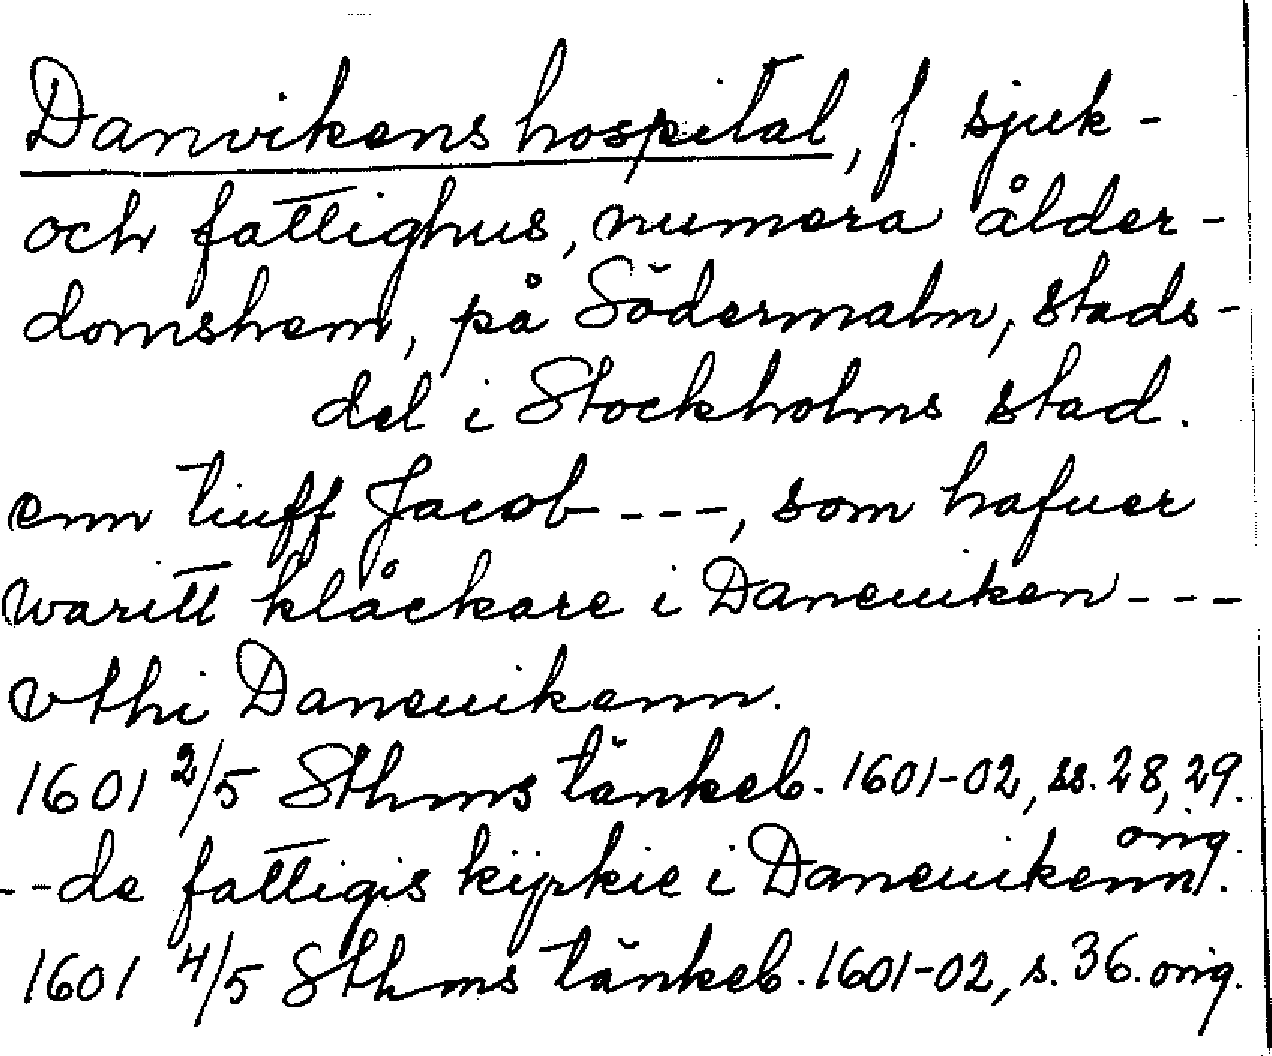 Danvikens hospital, f. sjuk-
och fattighus, numera ålder-
domshem, på Södermalm, stads-
del i Stockholms stad.
enn tiuff Jacob ---, som hafuer
waritt klåckare i Daneuiken ---
vthi Daneuikenn.
1601 2/5 Sthms tänkeb. 1601-02, ss. 28, 29.
orig.
--de fattigis kijrkie i Daneuikenn.
1601 4/5 Sthms tänkeb. 1601-02, s. 36. orig.